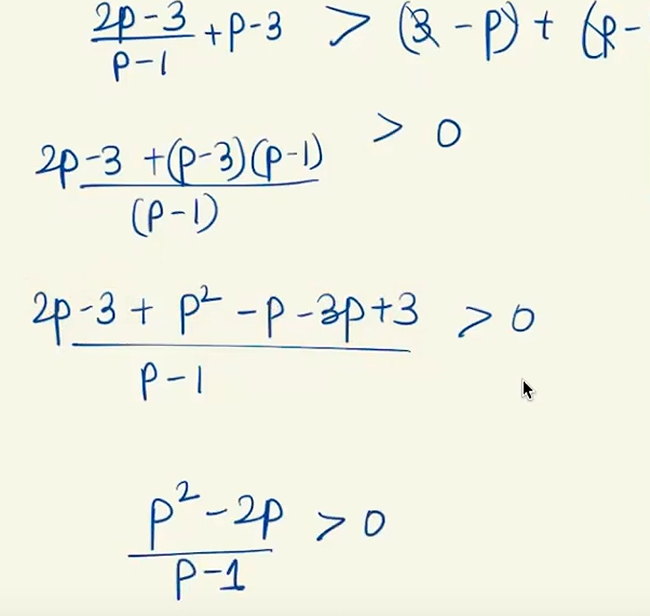 (2p-3)/(p-1) + p-3 > (3-p) + (p-
(2p-3 + (p-3)(p-1))/(p-1) > 0
(2p-3 + p² - p - 3p + 3)/(p-1) > 0
(p² - 2p)/(p-1) > 0